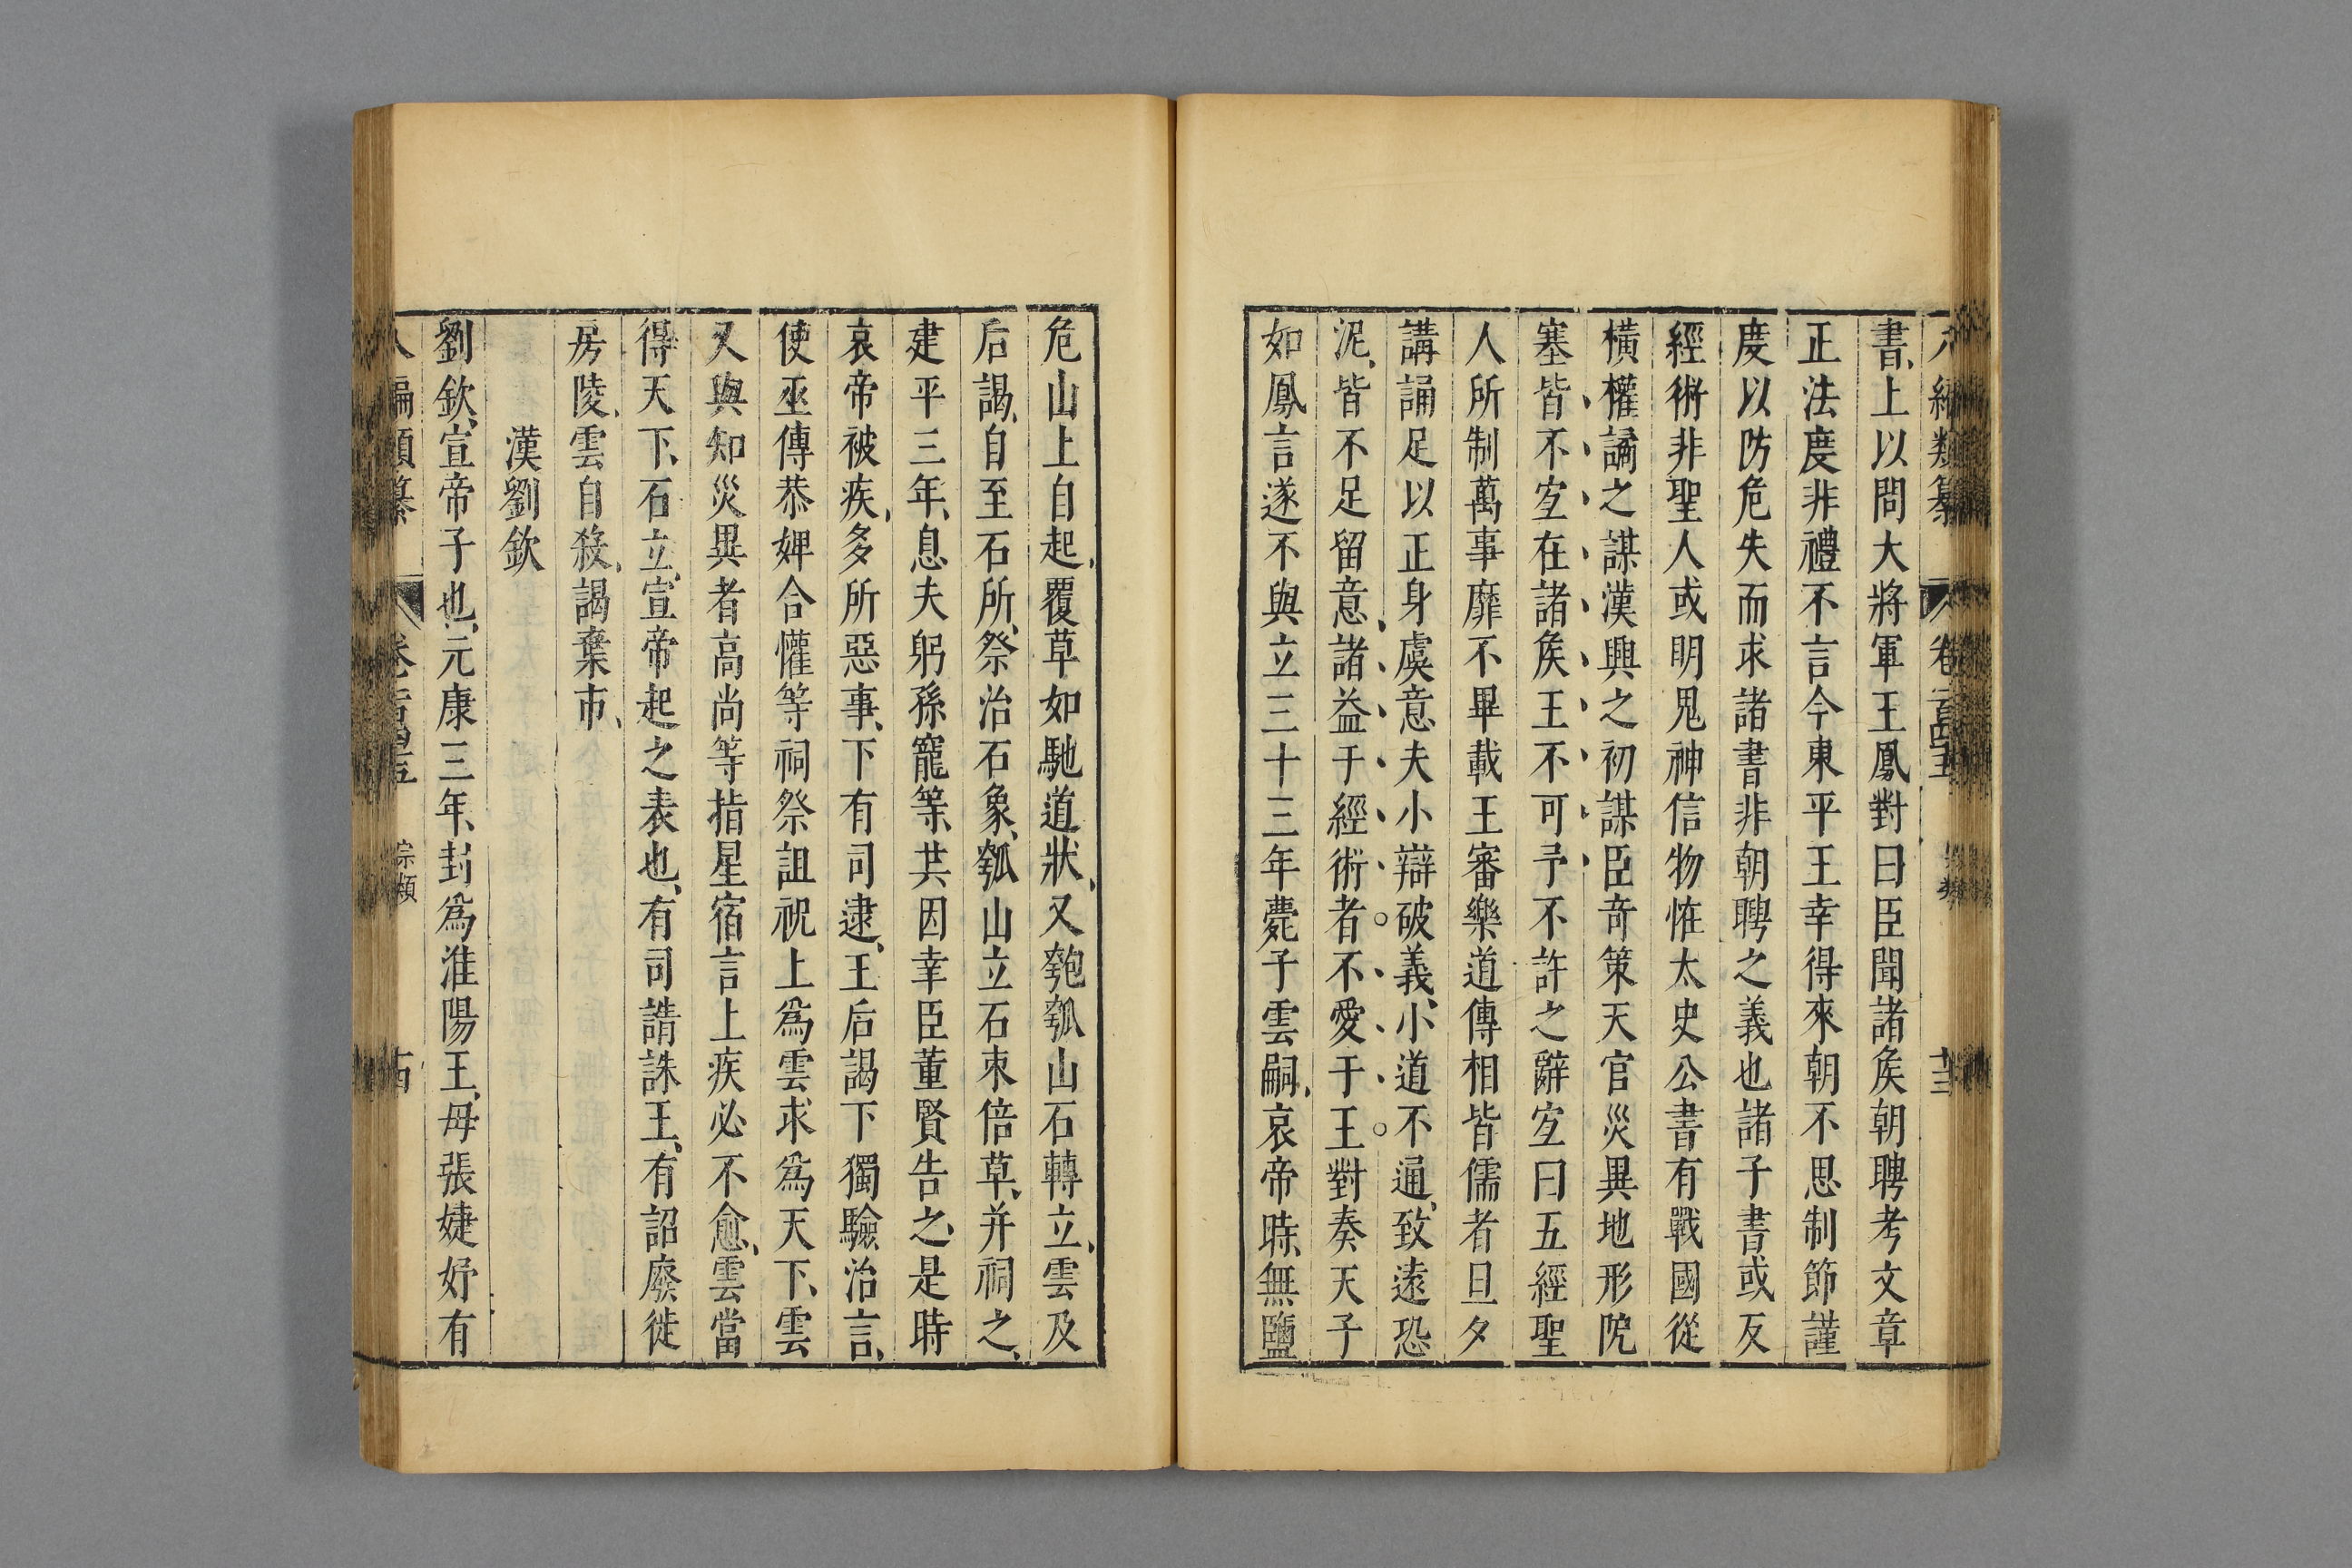 八編類纂 卷一百四十五 十三
書、上以問大將軍王鳳對曰臣聞諸矦朝聘考文章
正法度非禮不言今東平王幸得來朝不思制節謹
度以防危失而求諸書非朝聘之義也諸子書或反
經術非聖人或明鬼神信物恠太史公書有戰國從
橫權譎之謀漢興之初謀臣奇策天官災異地形阸
塞皆不宜在諸矦王不可予不許之辭宜曰五經聖
人所制萬事靡不畢載王審樂道傳相皆儒者旦夕
講誦足以正身虞意夫小辯破義、小道不通、致遠恐
泥、皆不足留意、諸益于經術者不愛于王對奏天子
如鳳言遂不與立三十三年薨子雲嗣、哀帝時、無鹽
危山上自起、覆草如馳道狀、又瓠山石轉立、雲及
后謁、自至石所、祭治石象、瓠山立石束倍草、并祠之、
建平三年、息夫躬孫寵等、共因幸臣董賢告之、是時
哀帝被疾、多所惡事、下有司逮、王后謁下獄驗治言、
使巫傳恭婢合懽等祠祭詛祝上爲雲求爲天下、雲
又與知災異者高尚等指星宿言上疾必不愈、雲當
得天下、石立、宣帝起之表也、有司請誅王、有詔廢徙
房陵、雲自殺、謁棄市、
漢劉欽
劉欽、宣帝子也、元康三年、封爲淮陽王、母張婕妤有
八編類纂 卷一百四十五 宗類 十四